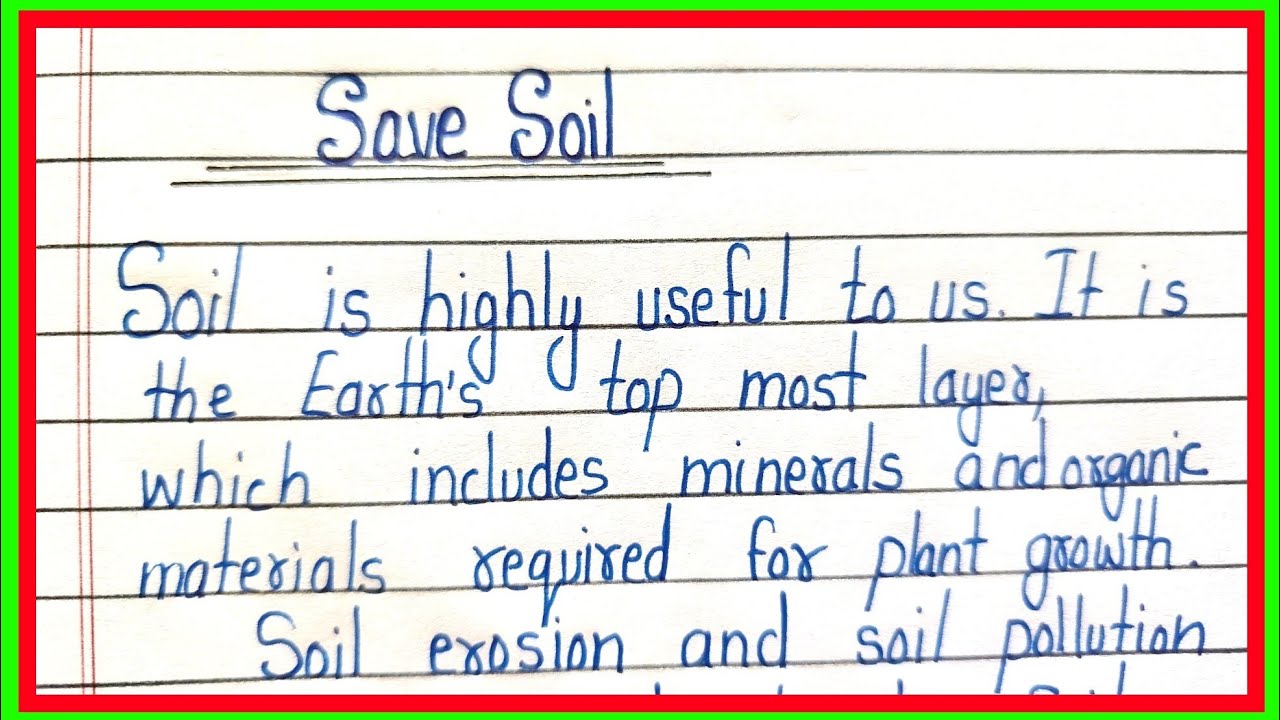 Save Soil
Soil is highly useful to us. It is
the Earth's top most layer,
which includes minerals and organic
materials required for plant growth.
Soil erosion and soil pollution